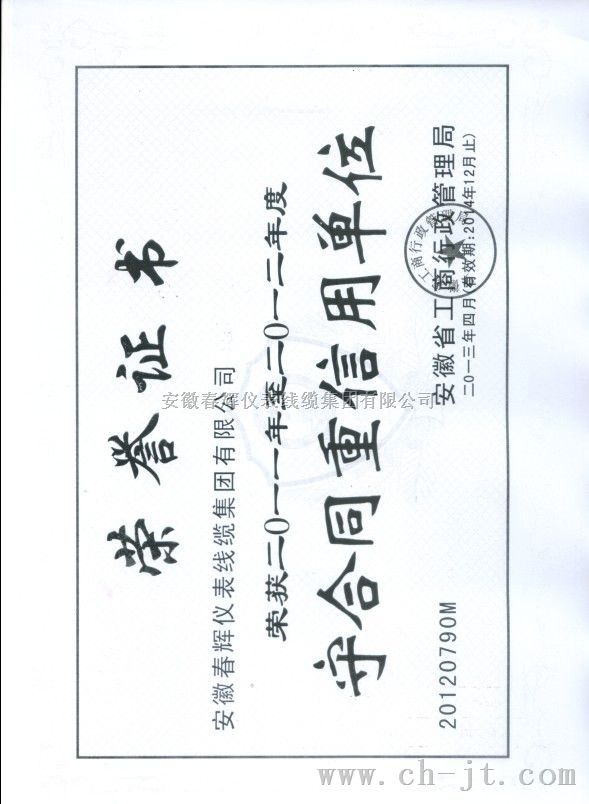 荣誉证书
安徽春辉仪表线缆集团有限公司
荣获二0一一年至二0一二年度
守合同重信用单位
安徽省工商行政管理局
二0一三年四月(有效期:2014年12月止)
20120790M
安徽春辉仪表线缆集团有限公司
www.ch-jt.com